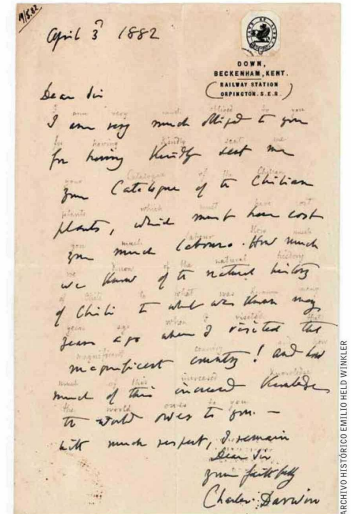 9/5.82
April 3d 1882
DOWN,
BECKENHAM, KENT.
RAILWAY STATION
ORPINGTON. S.E.R.
Dear Sir
I am very much obliged to you
for having kindly sent me
your Catalogue of the Chilian
plants, which must have cost
you much labour. How much
we know of the natural history
of Chili to what was known many
years ago when I visited that
magnificent country! And how
much of this increased knowledge
the world owes to you. —
With much respect, I remain
Dear Sir
yours faithfully
Charles Darwin
ARCHIVO HISTÓRICO EMILIO HELD WINKLER